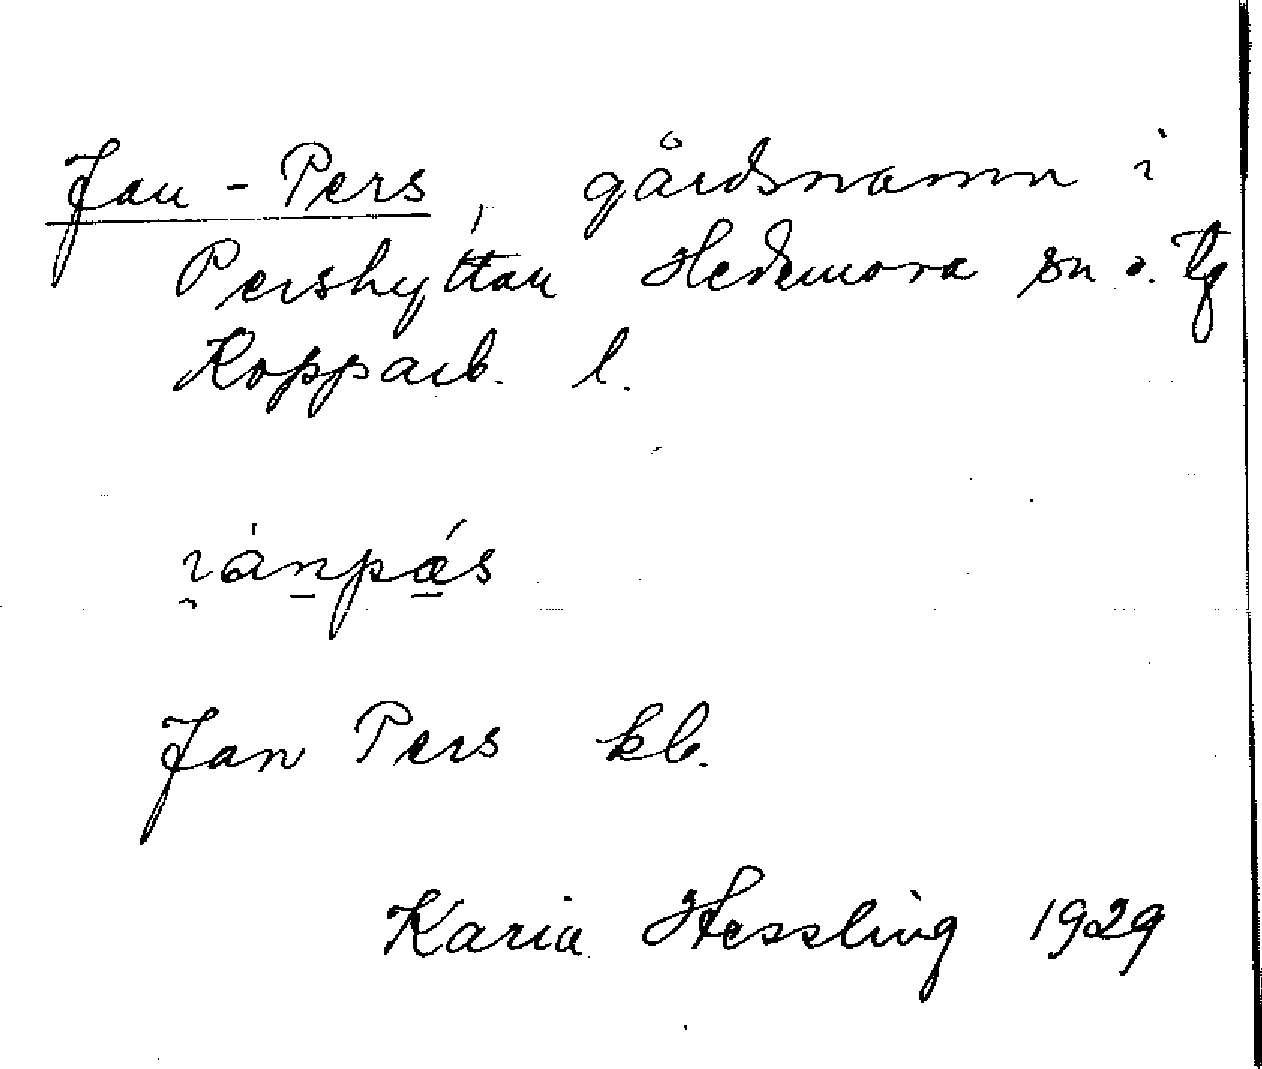 Jan-Pers, gårdsnamn i
Pershyttan Hedemora sn o. tg
Kopparb. l.
Jan Pers kb.
Karia Hessling 1929